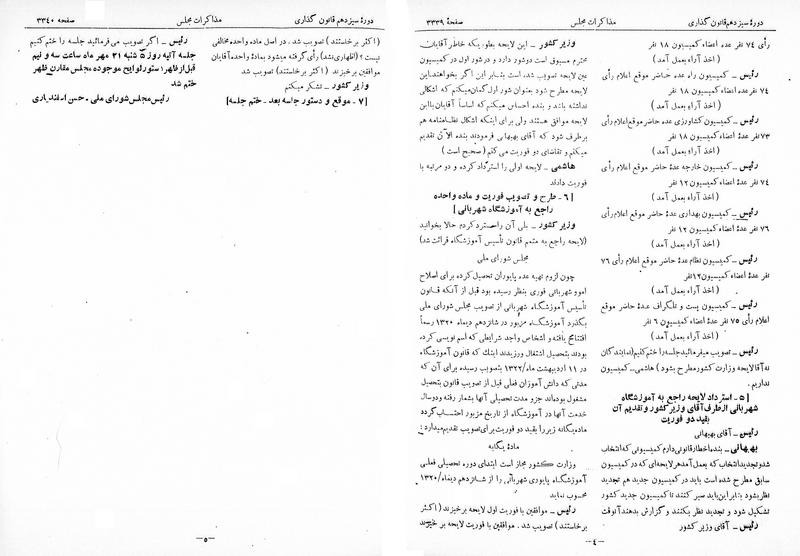 دورهٔ سیزدهم قانون گذاری
مذاکرات مجلس
صفحهٔ ۳۳۳۹
رأی ۷۴ نفر عده اعضاء کمیسیون ۱۸ نفر
(اخذ آراء بعمل آمد)
رئیس ــ کمیسیون راه عده حاضر موقع اعلام رأی
۷۴ نفر عده اعضاء کمیسیون ۱۸ نفر
(اخذ آراء بعمل آمد)
رئیس ــ کمیسیون کشاورزی عده حاضر موقع اعلام رأی
۷۳ نفر عدهٔ اعضاء کمیسیون ۱۸ نفر
(اخذ آراء بعمل آمد)
رئیس ــ کمیسیون خارجه عدهٔ حاضر موقع اعلام رأی
۷۴ نفر عدهٔ اعضاء کمیسیون ۱۲ نفر
(اخذ آراء بعمل آمد)
رئیس ــ کمیسیون بهداری عدهٔ حاضر موقع اعلام رأی
۷۶ نفر عدهٔ اعضاء کمیسیون ۱۲ نفر
(اخذ آراء بعمل آمد)
رئیس ــ کمیسیون نظام عدهٔ حاضر موقع اعلام رأی ۷۶
نفر عده اعضاء کمیسیون ۱۲ نفر
(اخذ آراء بعمل آمد)
رئیس ــ کمیسیون پست و تلگراف عدهٔ حاضر موقع
اعلام رأی ۷۵ نفر عدهٔ اعضاء کمیسیون ۶ نفر
(اخذ آراء بعمل آمد)
رئیس ــ تصویب میفرمائید جلسه را ختم کنیم (نمایندگان
نه آقا لایحه وزارت کشور مطرح بشود) هاشمی ــ کمیسیون
نداریم.
[۵ ــ استرداد لایحه راجع به آموزشگاه
شهربانی از طرف آقای وزیر کشور و تقدیم آن
بقید دو فوریت
رئیس ــ آقای بهبهانی
بهبهانی ــ بنده اخطار قانونی دارم کمیسیونی که انتخاب
شد و تجدید انتخاب که بعمل آمد هر لایحه‌ای که در کمیسیون
سابق مطرح شده است باید در کمیسیون جدید هم تجدید
نظر بشود بنابر این باید صبر کنند تا کمیسیون جدید کشور
تشکیل شود و تجدید نظر بکنند و گزارش بدهند آنوقت
رئیس ــ آقای وزیر کشور
وزیر کشور ــ این لایحه بطوریکه خاطر آقایان
محترم مسبوق است دو شور دارد و در شور اول در کمیسیون
عین لایحه تصویب شد، است بنابر این اگر بخواهند این
لایحه مطرح شود بعنوان شور اول گمان میکنم که اشکالی
نداشته باشد و بنده احساس میکنم که اساساً آقایان با این
لایحه موافق هستند ولی برای اینکه اشکال نظامنامه هم
برطرف شود که آقای بهبهانی فرمودند بنده الآن تقدیم
میکنم و تقاضای دو فوریت می کنم (صحیح است)
هاشمی ــ لایحه اولی را استرداد کرده و دو مرتبه با
فوریت دادند
[۶ ــ طرح و تصویب فوریت و ماده واحده
راجع به آموزشگاه شهربانی]
وزیر کشور ــ بلی آن را مسترد کردم حالا بخوانید
(لایحه راجع به متمم قانون تأسیس آموزشگاه قرائت شد)
مجلس شورای ملی
چون لزوم تهیه عده پایوران تحصیل کرده برای اصلاح
امور شهربانی فوری بنظر رسیده بود قبل از آنکه قانون
تأسیس آموزشگاه شهربانی از تصویب مجلس شورای ملی
بگذرد آموزشگاه مزبور در شانزدهم دیماه ۱۳۲۰ رسماً
افتتاح یافته و اشخاص واجد شرایطی که اسم نویسی کرده
بودند بتحصیل اشتغال ورزیدند اینک که قانون آموزشگاه
در ۱۱ اردیبهشت ماه ۱۳۲۲ بتصویب رسیده برای آن که
مدتی که دانش آموزان فعلی قبل از تصویب قانون بتحصیل
مشغول بوده‌اند جزو مدت تحصیلی آنها بشمار رفته و دو سال
خدمت آنها در آموزشگاه از تاریخ مزبور احتساب گردد
ماده یگانه زیر را بقید دو فوریت برای تصویب تقدیم میدارد:
مادهٔ یگانه
وزارت کشور مجاز است ابتدای دوره تحصیلی فعلی
آموزشگاه پایوری شهربانی را از شانزدهم دیماه ۱۳۲۰
محسوب نماید
رئیس ــ موافقین با فوریت اول لایحه برخیزند (اکثر
برخاستند) تصویب شد. موافقین با فوریت لایحه بر خیزند
ــ ۴ ــ
دورهٔ سیزدهم قانون گذاری
مذاکرات مجلس
صفحه ۳۳۴۰
(اکثر برخاستند) تصویب شد. در اصل ماده واحده مخالفی
نیست؟ (اظهاری نشد) رأی گرفته میشود بمادهٔ واحده آقایان
موافقین برخیزند (اکثر برخاستند) تصویب شد
وزیر کشور ــ تشکر میکنم
[۷ ــ موقع و دستور جلسه بعد ــ ختم جلسه]
رئیس ــ اگر تصویب می فرمائید جلسه را ختم کنیم
جلسه آتیه روز ۵ شنبه ۲۱ مهر ماه ساعت سه و نیم
قبل از ظهر؛ دستور لوایح موجوده مجلس مقارن ظهر
ختم شد
رئیس مجلس شورای ملی ـ حسن اسفندیاری
ــ ۵ ــ